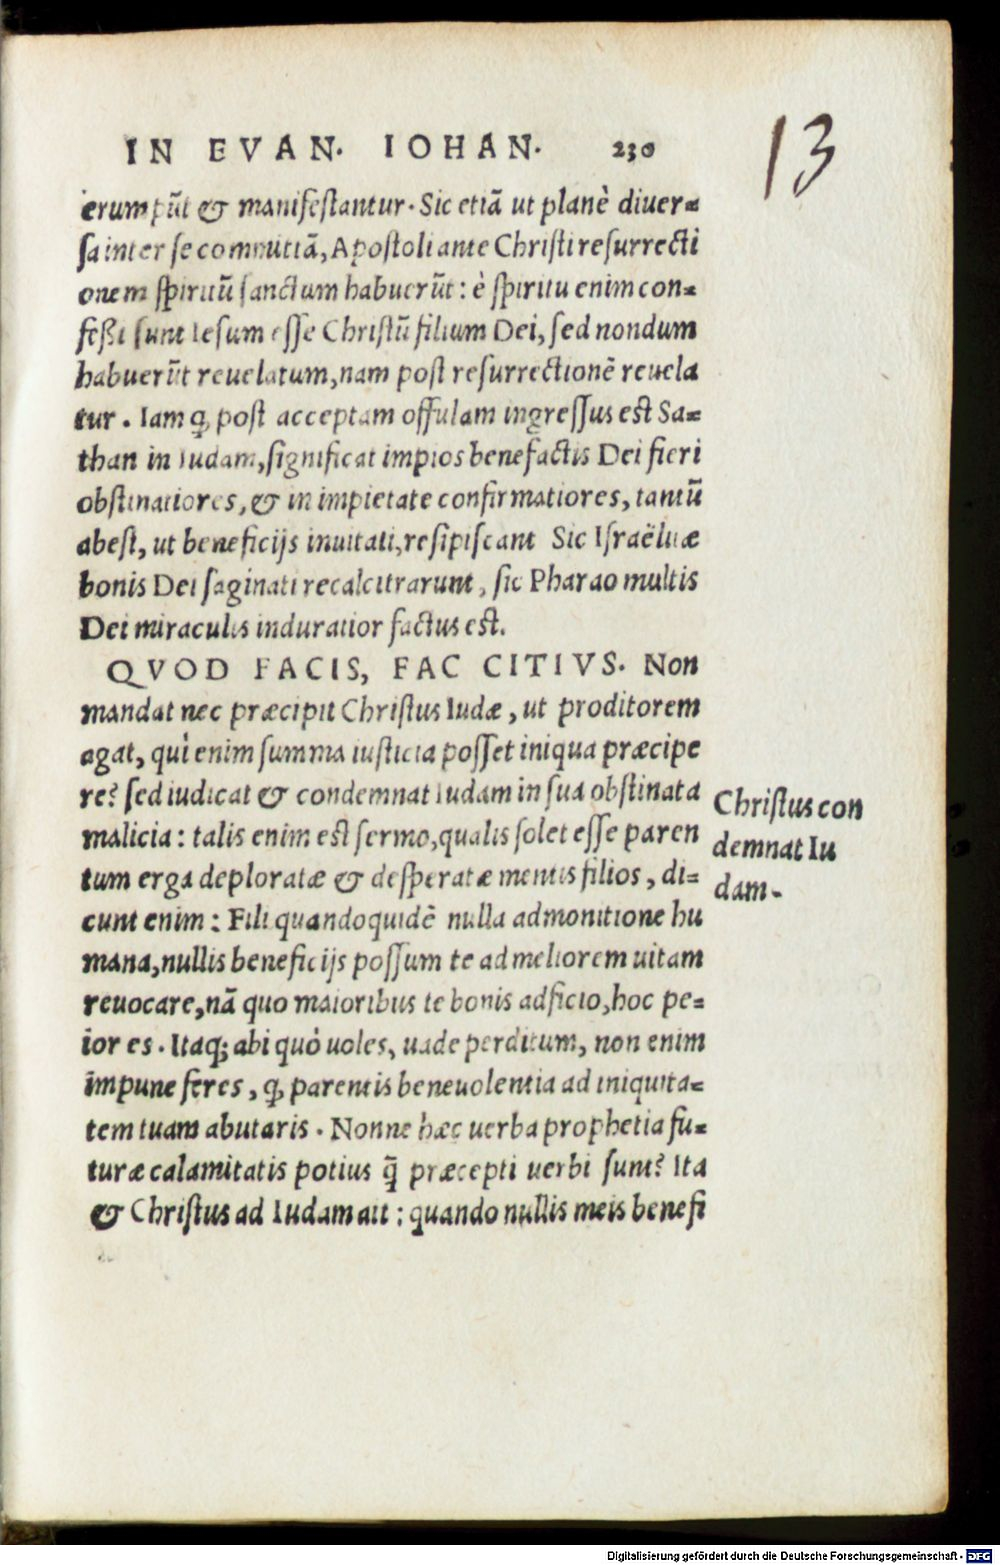 IN EVAN. IOHAN. 230
13
erumpūt & manifestantur. Sic etiā ut planè diuer-
sa inter se committā, Apostoli ante Christi resurrecti
onem spiritū sanctum habuerūt: è spiritu enim con-
feßi sunt Iesum esse Christū filium Dei, sed nondum
habuerūt reuelatum, nam post resurrectionē reuela
tur. Iam q̨ post acceptam offulam ingressus est Sa-
than in Iudam, significat impios benefactis Dei fieri
obstinatiores, & in impietate confirmatiores, tantū
abest, ut beneficijs inuitati, resipiscant Sic Israëlitæ
bonis Dei saginati recalcitrarunt, sic Pharao multis
Dei miraculis induratior factus est.
QVOD FACIS, FAC CITIVS. Non
mandat nec præcipit Christus Iudæ, ut proditorem
agat, quì enim summa iusticia posset iniqua præcipe
re? sed iudicat & condemnat Iudam in sua obstinata
malicia: talis enim est sermo, qualis solet esse paren
tum erga deploratæ & desperatæ mentis filios, di-
cunt enim: Fili quandoquidē nulla admonitione hu
mana, nullis beneficijs possum te ad meliorem uitam
reuocare, nā quo maioribus te bonis adficio, hoc pe-
ior es. Itaq; abi quò uoles, uade perditum, non enim
impune feres, q̨ parentis beneuolentia ad iniquita-
tem tuam abutaris. Nonne hæc uerba prophetia fu-
turæ calamitatis potius q̄ præcepti uerbi sunt? Ita
& Christus ad Iudam ait: quando nullis meis benefi
Christus con
demnat Iu
dam.
Digitalisierung gefördert durch die Deutsche Forschungsgemeinschaft - DFG